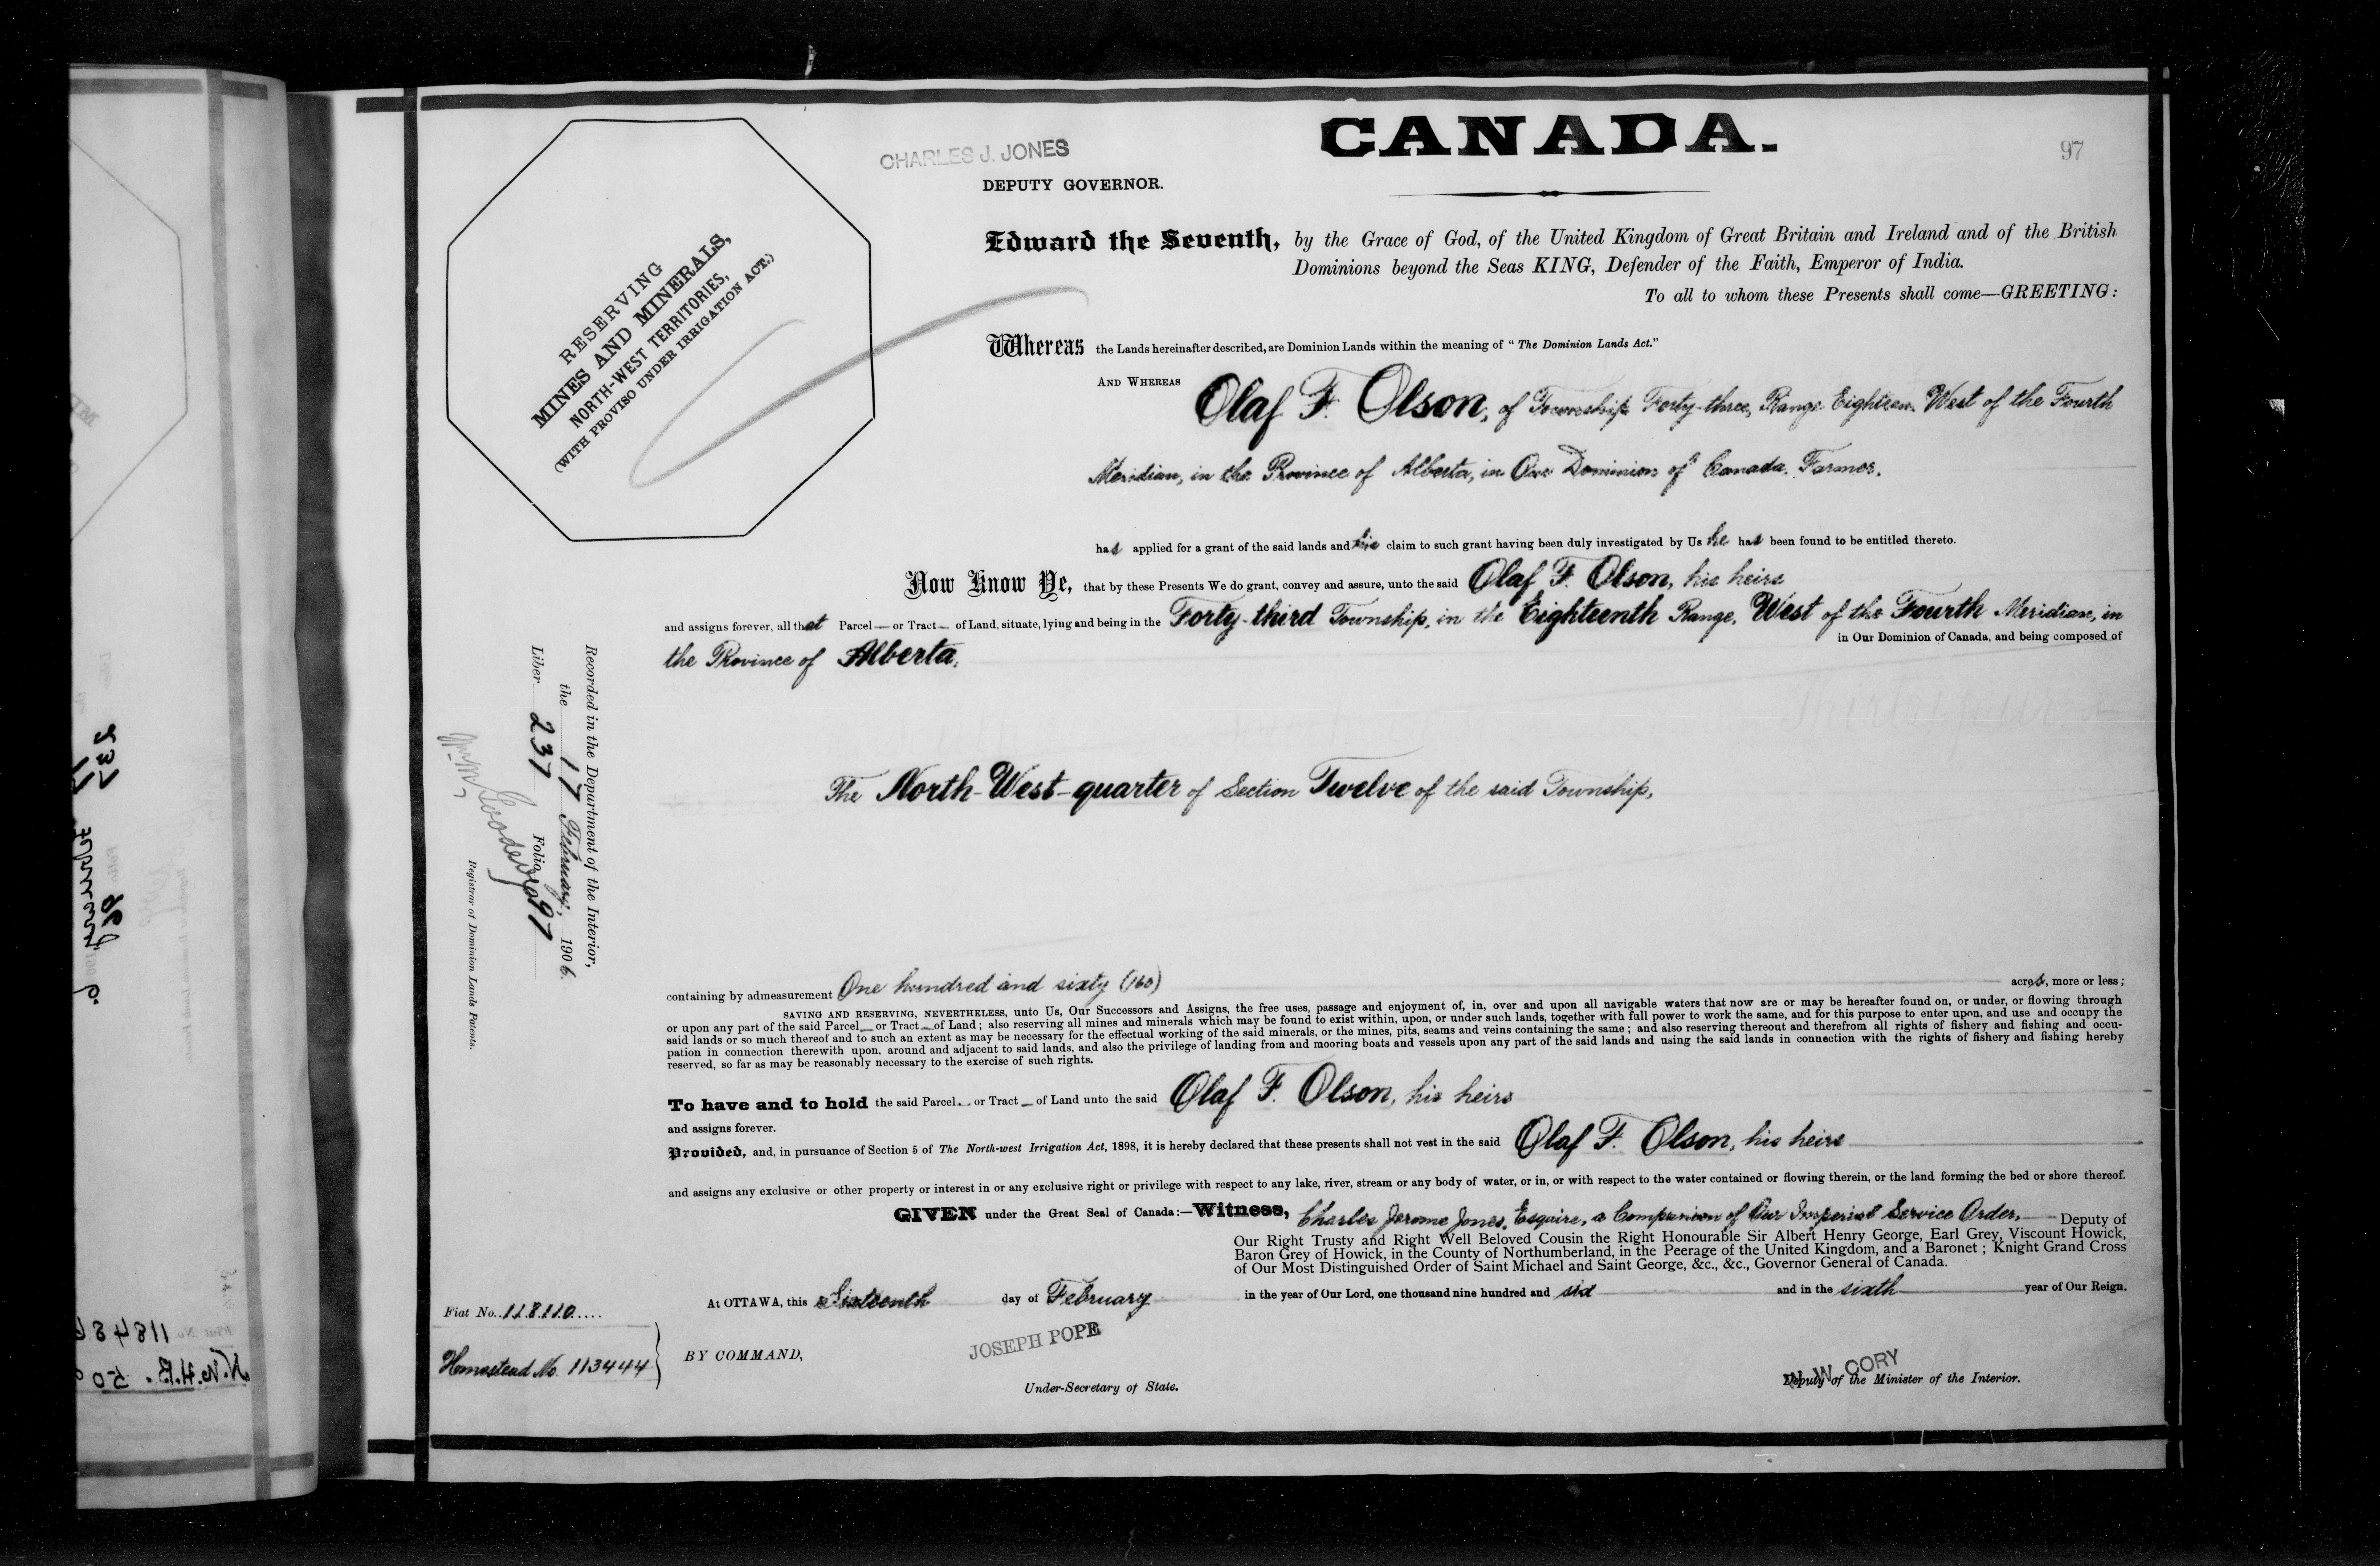 CANADA.
97
CHARLES J. JONES
DEPUTY GOVERNOR.
RESERVING
MINES AND MINERALS,
NORTH-WEST TERRITORIES,
(WITH PROVISO UNDER IRRIGATION ACT.)
Edward the Seventh, by the Grace of God, of the United Kingdom of Great Britain and Ireland and of the British
Dominions beyond the Seas KING, Defender of the Faith, Emperor of India.
To all to whom these Presents shall come—GREETING:
Whereas the Lands hereinafter described, are Dominion Lands within the meaning of "The Dominion Lands Act."
AND WHEREAS Olaf F. Olson, of Township Forty-three, Range Eighteen West of the Fourth
Meridian, in the Province of Alberta, in Our Dominion of Canada. Farmer.
has applied for a grant of the said lands and his claim to such grant having been duly investigated by Us he has been found to be entitled thereto.
Now Know Ye, that by these Presents We do grant, convey and assure, unto the said Olaf F. Olson, his heirs
and assigns forever, all that Parcel — or Tract — of Land, situate, lying and being in the Forty-third Township, in the Eighteenth Range, West of the Fourth Meridian, in
in Our Dominion of Canada, and being composed of
the Province of Alberta.
The North-West-quarter of Section Twelve of the said Township,
Recorded in the Department of the Interior,
the 17 February, 1906.
Liber 237 Folio 97
Registrar of Dominion Lands Patents.
containing by admeasurement One hundred and sixty (160) acres, more or less;
SAVING AND RESERVING, NEVERTHELESS, unto Us, Our Successors and Assigns, the free uses, passage and enjoyment of, in, over and upon all navigable waters that now are or may be hereafter found on, or under, or flowing through
or upon any part of the said Parcel — or Tract — of Land; also reserving all mines and minerals which may be found to exist within, upon, or under such lands, together with full power to work the same, and for this purpose to enter upon, and use and occupy the
said lands or so much thereof and to such an extent as may be necessary for the effectual working of the said minerals, or the mines, pits, seams and veins containing the same; and also reserving thereout and therefrom all rights of fishery and fishing and occu-
pation in connection therewith upon, around and adjacent to said lands, and also the privilege of landing from and mooring boats and vessels upon any part of the said lands and using the said lands in connection with the rights of fishery and fishing hereby
reserved, so far as may be reasonably necessary to the exercise of such rights.
To have and to hold the said Parcel — or Tract — of Land unto the said Olaf F. Olson, his heirs
and assigns forever.
Provided, and, in pursuance of Section 5 of The North-west Irrigation Act, 1898, it is hereby declared that these presents shall not vest in the said Olaf F. Olson, his heirs
and assigns any exclusive or other property or interest in or any exclusive right or privilege with respect to any lake, river, stream or any body of water, or in, or with respect to the water contained or flowing therein, or the land forming the bed or shore thereof.
GIVEN under the Great Seal of Canada:—Witness, Charles Jerome Jones, Esquire, a Companion of Our Imperial Service Order, — Deputy of
Our Right Trusty and Right Well Beloved Cousin the Right Honourable Sir Albert Henry George, Earl Grey, Viscount Howick,
Baron Grey of Howick, in the County of Northumberland, in the Peerage of the United Kingdom, and a Baronet; Knight Grand Cross
of Our Most Distinguished Order of Saint Michael and Saint George, &c., &c., Governor General of Canada.
At OTTAWA, this Sixteenth day of February in the year of Our Lord, one thousand nine hundred and six and in the sixth year of Our Reign.
Fiat No. 118110
Homestead No. 113444
BY COMMAND,
JOSEPH POPE
Under-Secretary of State.
W. W. CORY
Deputy of the Minister of the Interior.